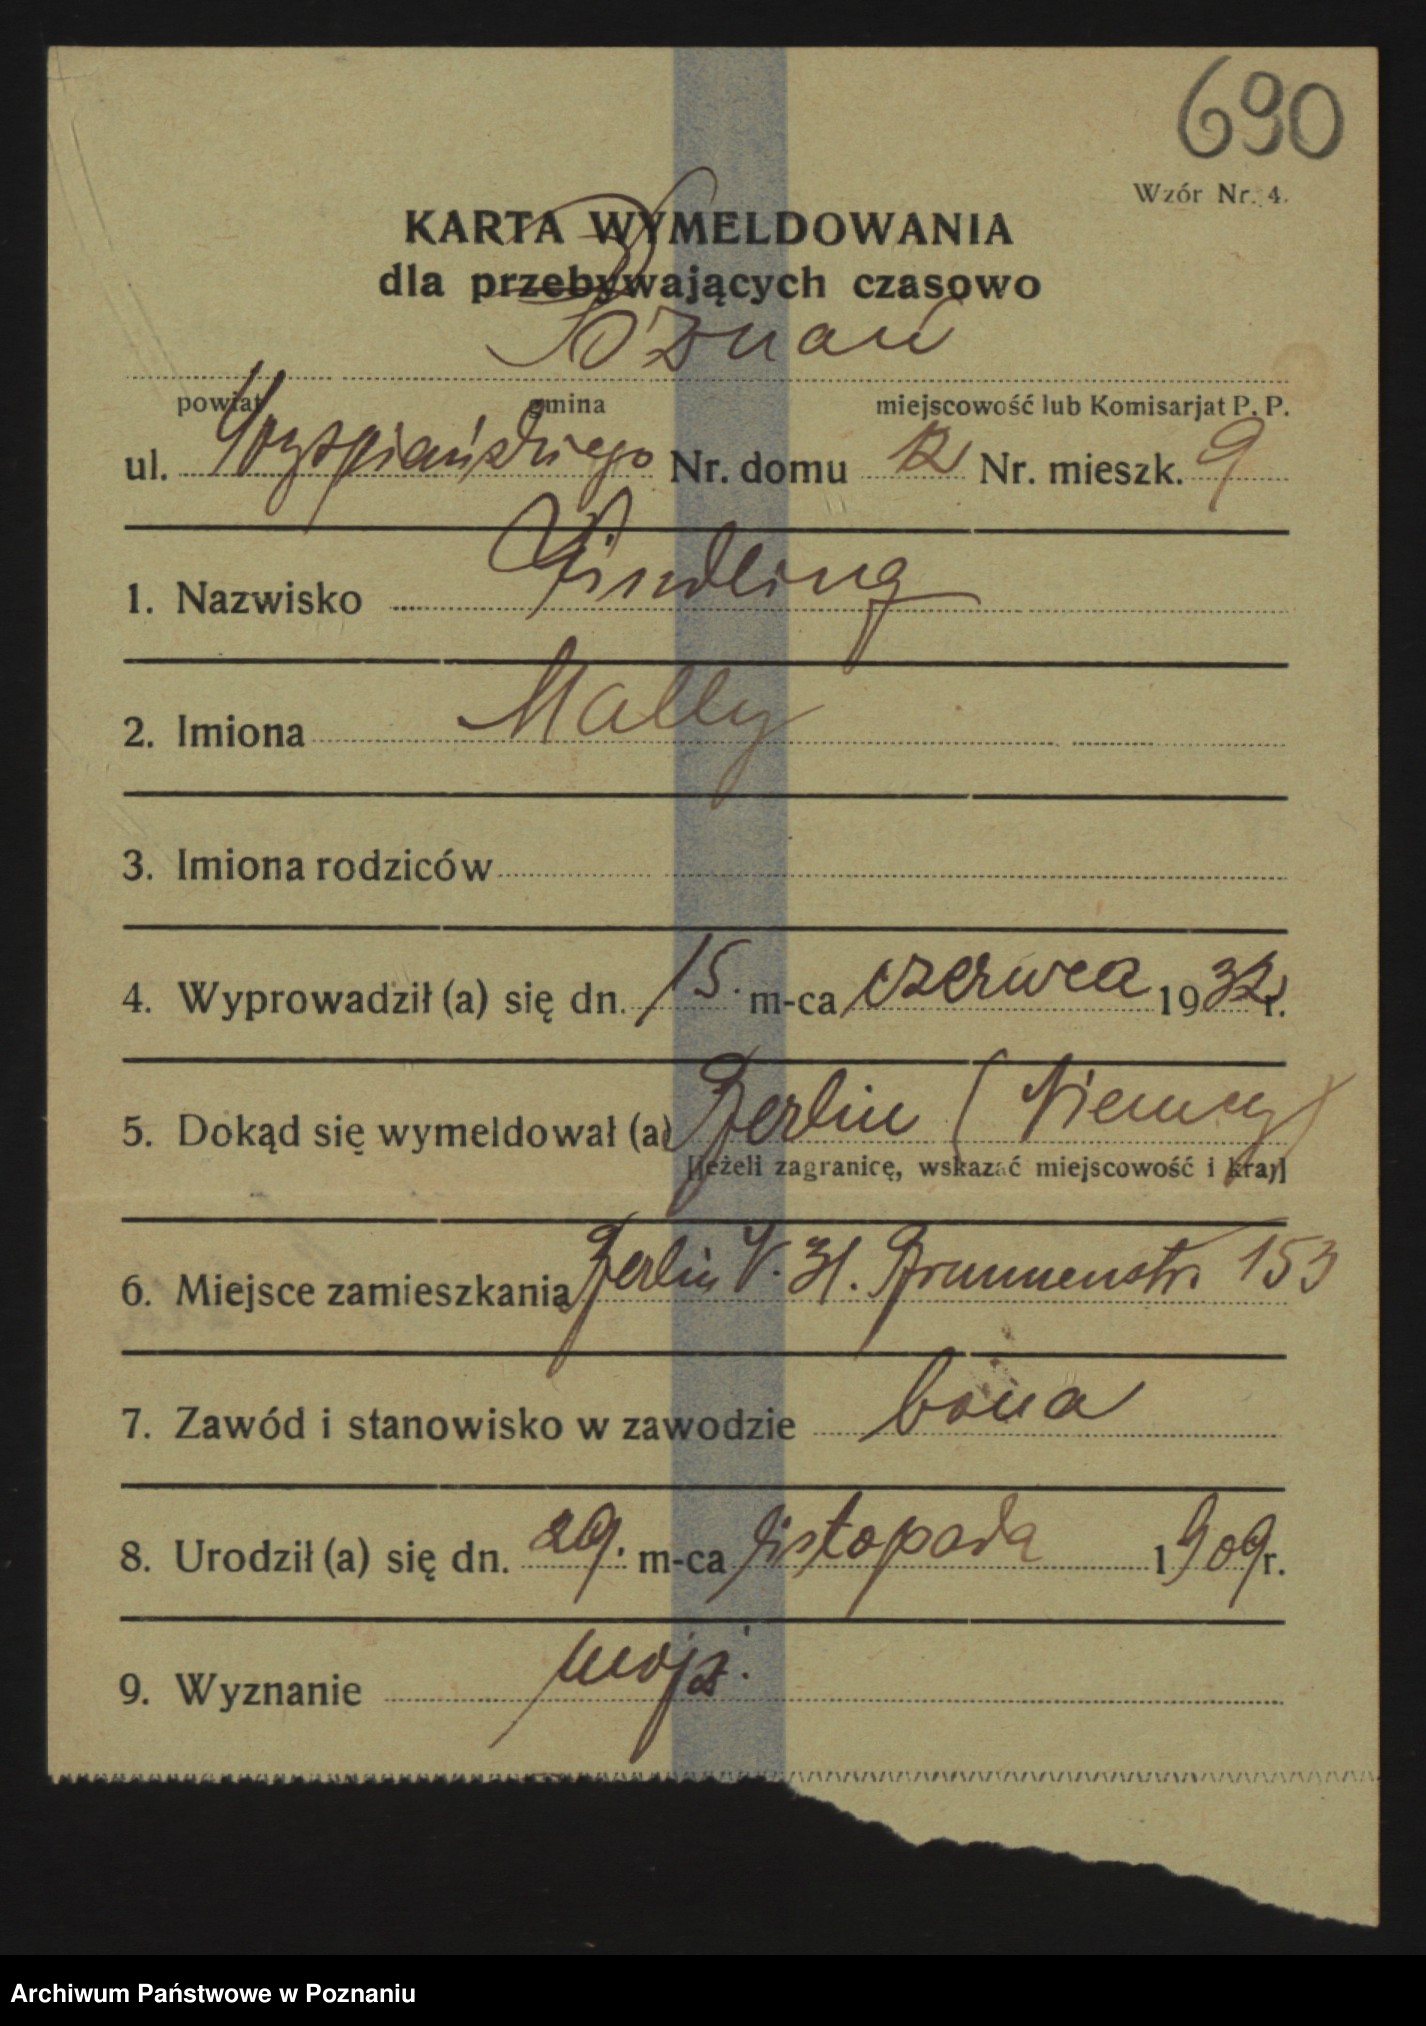 690
Wzór Nr. 4.
KARTA WYMELDOWANIA
dla przebywających czasowo
Poznań
powiat gmina miejscowość lub Komisarjat P. P.
ul. Wyspiańskiego Nr. domu 12 Nr. mieszk. 9
1. Nazwisko Findling
2. Imiona Mally
3. Imiona rodziców
4. Wyprowadził (a) się dn. 15. m-ca czerwca 1932 r.
5. Dokąd się wymeldował (a) Berlin (Niemcy)
[jeżeli zagranicę, wskazać miejscowość i kraj]
6. Miejsce zamieszkania Berlin Brunnenstr. 153
7. Zawód i stanowisko w zawodzie bona
8. Urodził (a) się dn. 29. m-ca listopada 1909 r.
9. Wyznanie mojż.
Archiwum Państwowe w Poznaniu